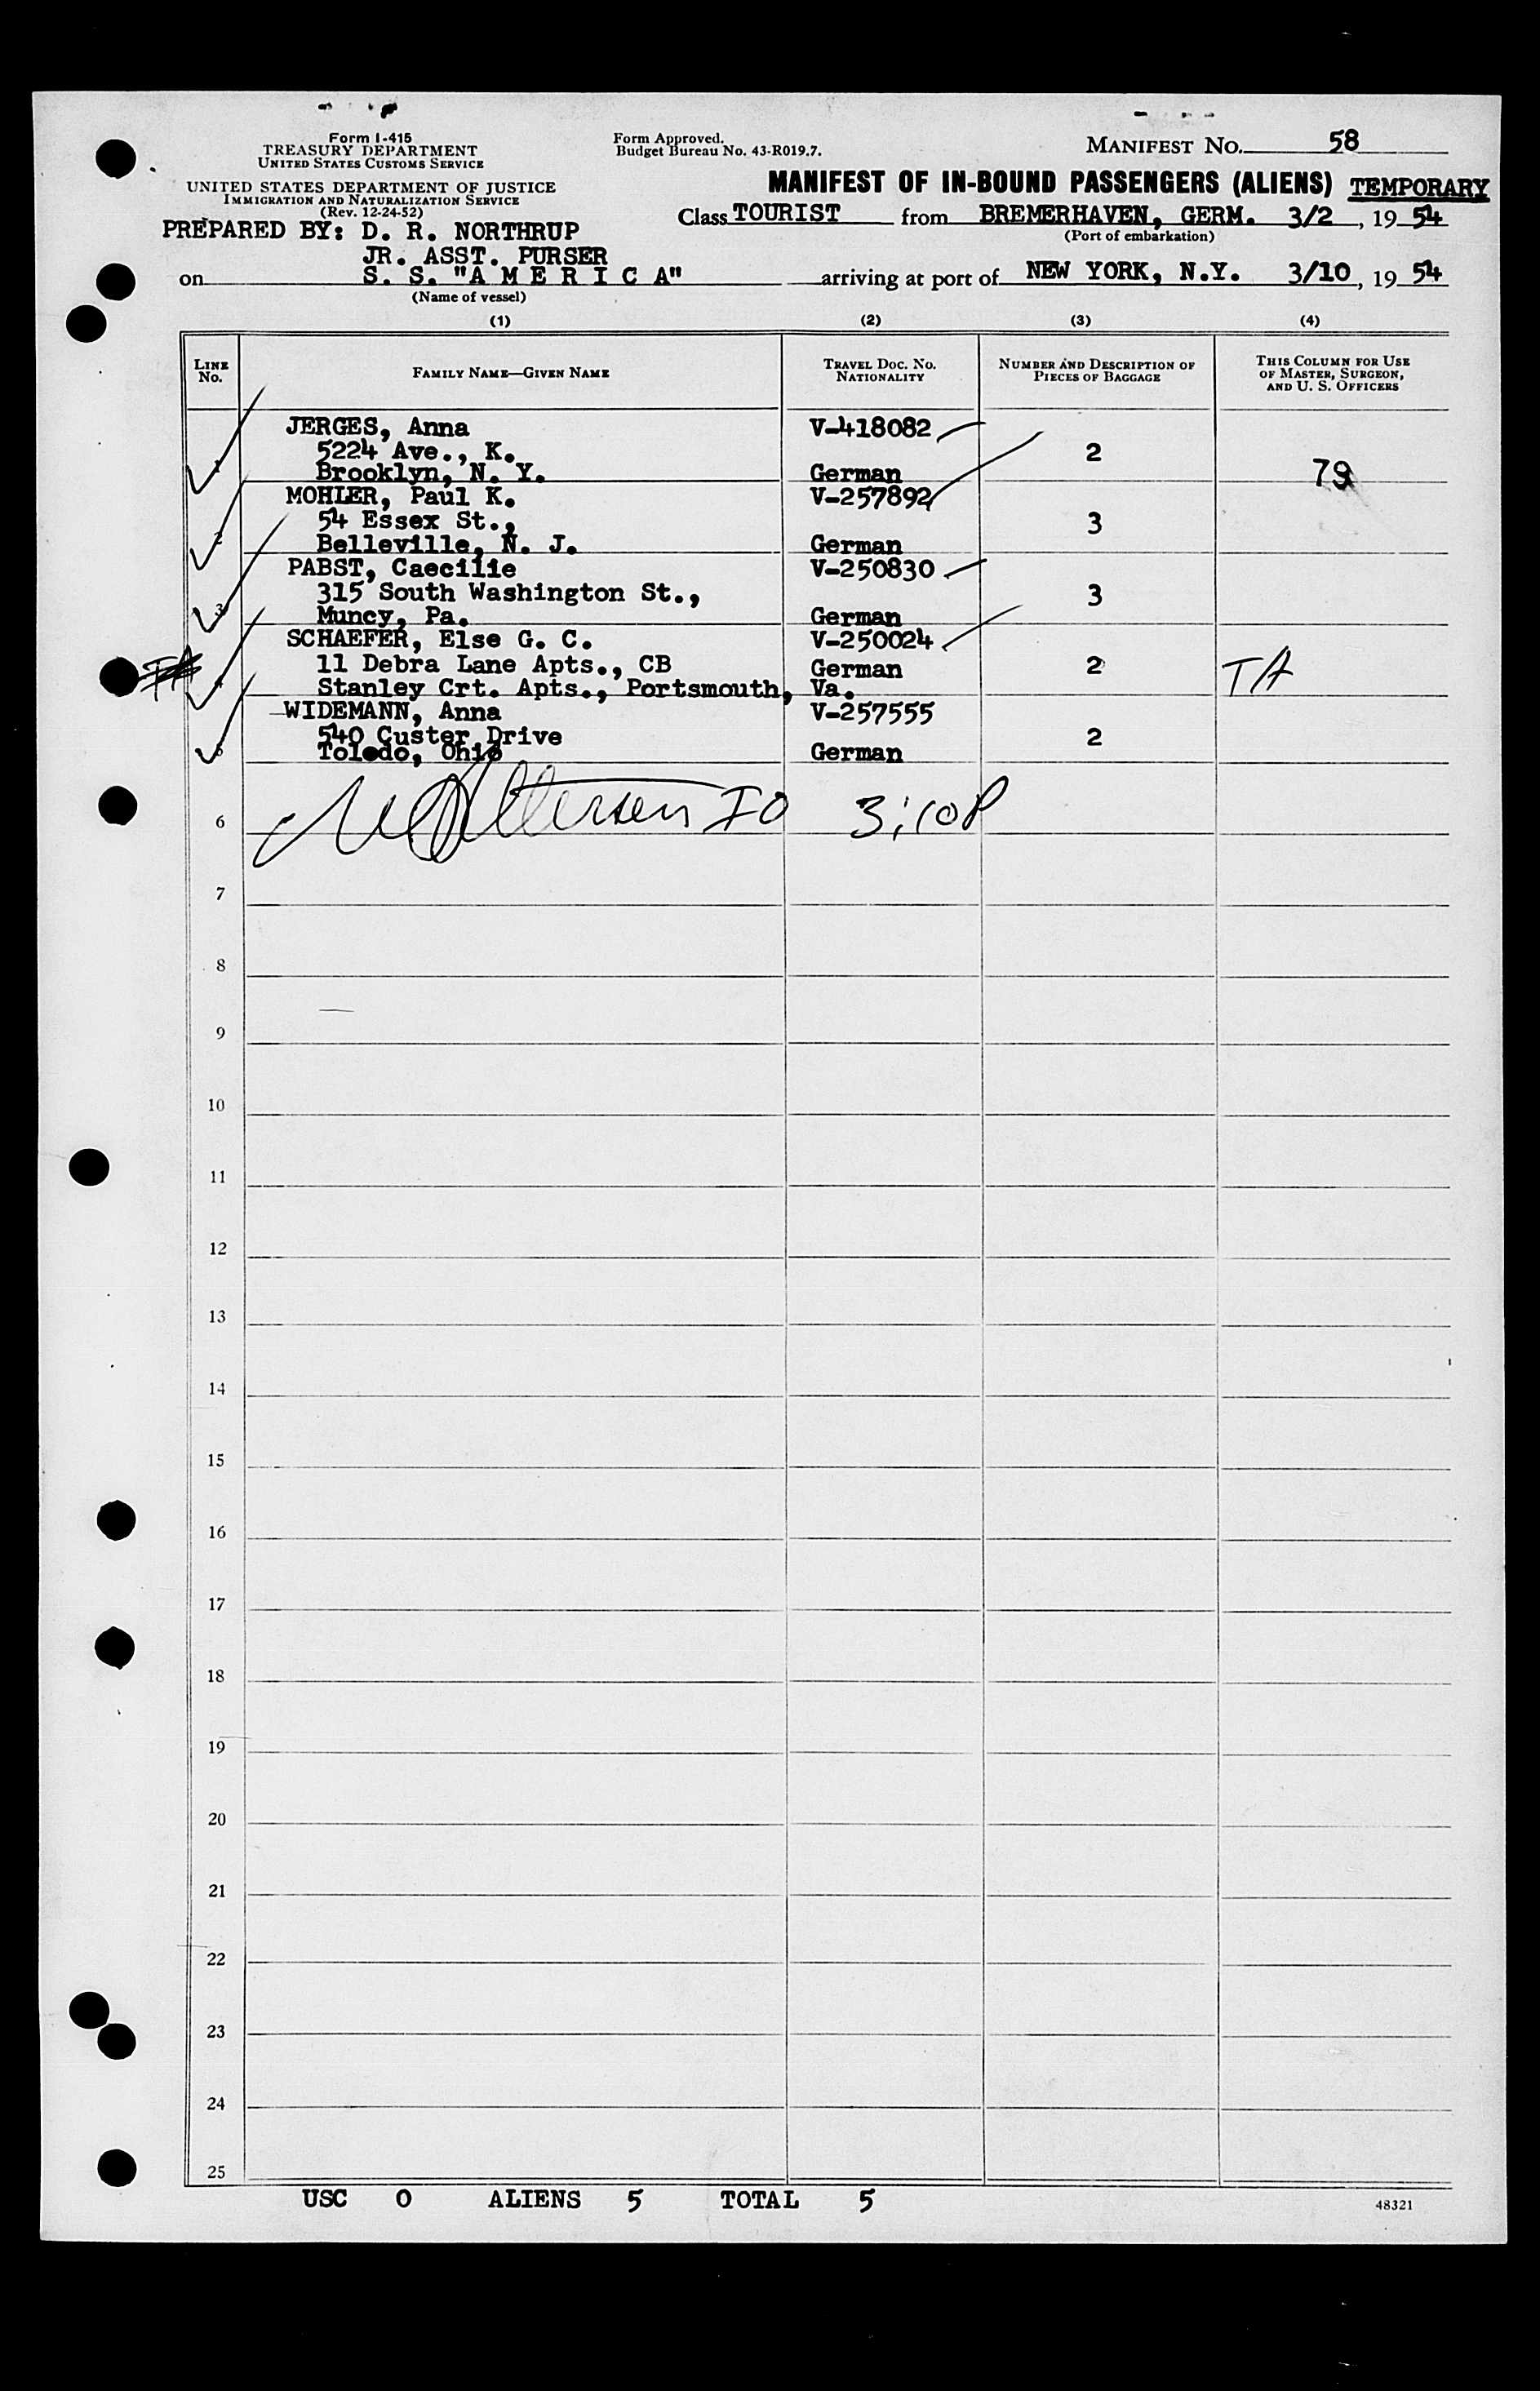 Form I-415
TREASURY DEPARTMENT
UNITED STATES CUSTOMS SERVICE
UNITED STATES DEPARTMENT OF JUSTICE
IMMIGRATION AND NATURALIZATION SERVICE
(Rev. 12-24-52)
Form Approved.
Budget Bureau No. 43-R019.7.
MANIFEST NO. 58
MANIFEST OF IN-BOUND PASSENGERS (ALIENS) TEMPORARY
Class TOURIST from BREMERHAVEN, GERM. 3/2, 19 54
(Port of embarkation)
PREPARED BY: D. R. NORTHRUP
JR. ASST. PURSER
on S. S. "A M E R I C A" arriving at port of NEW YORK, N.Y. 3/10, 19 54
(Name of vessel)
(1) (2) (3) (4)
LINE NO. FAMILY NAME—GIVEN NAME TRAVEL DOC. NO. NATIONALITY NUMBER AND DESCRIPTION OF PIECES OF BAGGAGE THIS COLUMN FOR USE OF MASTER, SURGEON, AND U. S. OFFICERS
JERGES, Anna V-418082
5224 Ave., K. 2
1 Brooklyn, N. Y. German
MOHLER, Paul K. V-257892
54 Essex St., 3
2 Belleville, N. J. German
PABST, Caecilie V-250830
315 South Washington St., 3
3 Muncy, Pa. German
SCHAEFER, Else G. C. V-250024
11 Debra Lane Apts., CB German 2 TA
4 Stanley Crt. Apts., Portsmouth, Va.
WIDEMANN, Anna V-257555
540 Custer Drive 2
5 Toledo, Ohio German
6 IO 3:10P
7
8
9
10
11
12
13
14
15
16
17
18
19
20
21
22
23
24
25
USC 0 ALIENS 5 TOTAL 5
48321